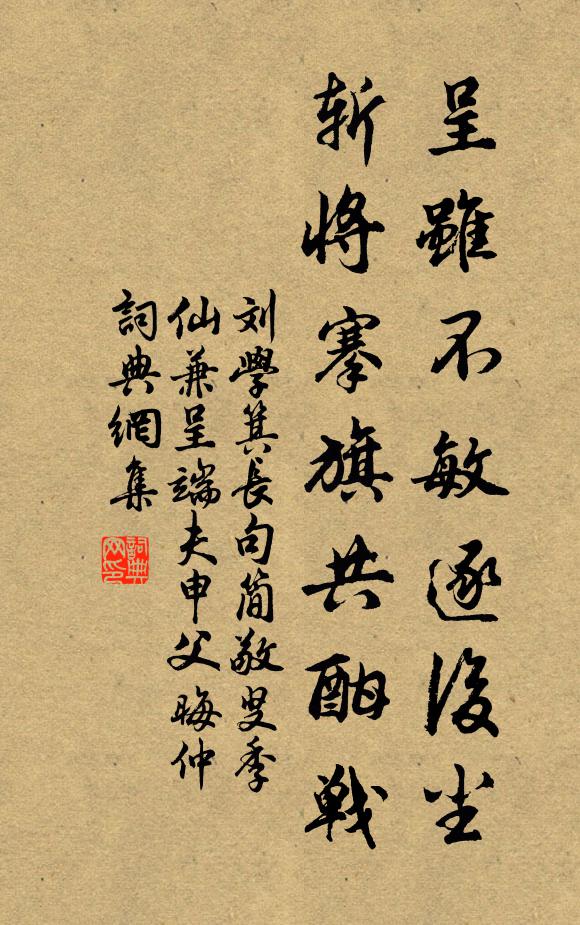 呈雖不敏逐後塵
斬將搴旗共酣戰
刘學箕長句簡敬叟季
仙兼呈端夫申父晦仲
詞典網集
詞典网印